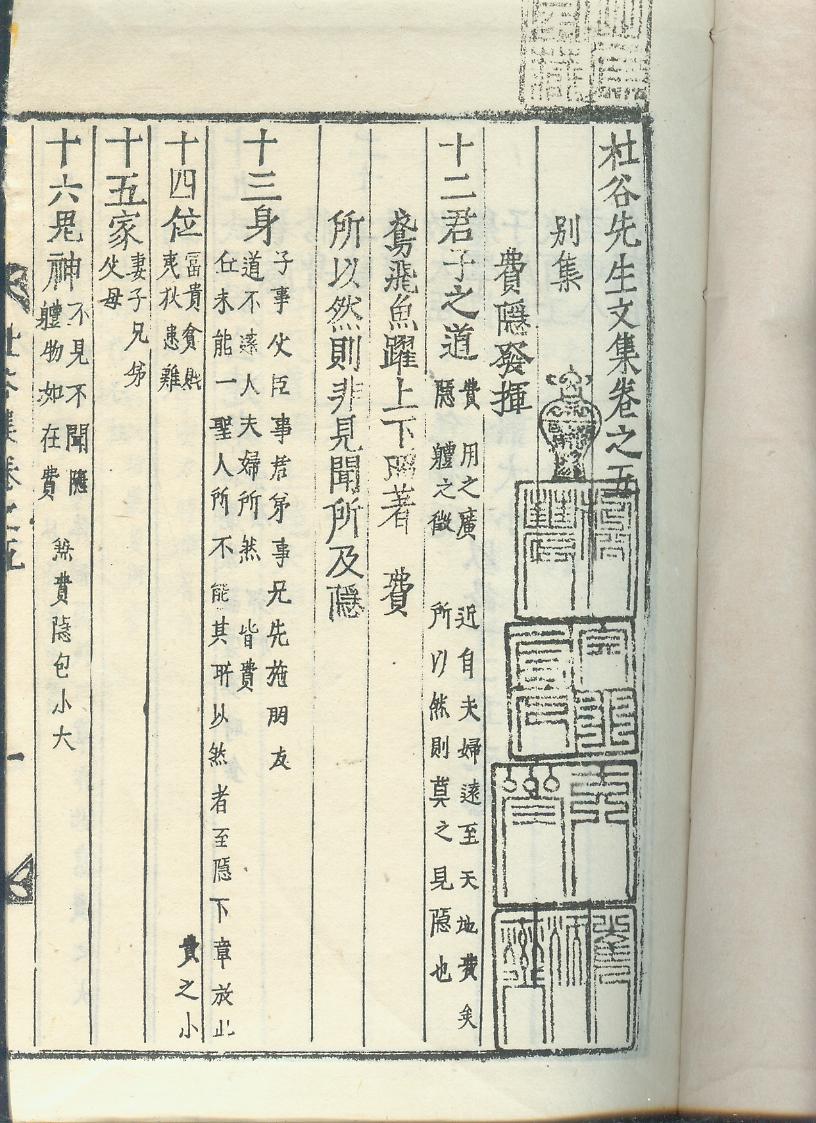 杜谷先生文集卷之五
別集
費隱發揮
十二君子之道 費 用之廣 近自夫婦遠至天地費矣
隱 體之微 所以然則莫之見隱也
鳶飛魚躍上下 著 費
所以然則非見聞所及隱
十三身 子事父臣事君弟事兄先施朋友
道不遠人夫婦所然 皆費
丘未能一聖人所不能其所以然者至隱下章放此
十四位 富貴貧賤
夷狄患難 費之小
十五家 妻子兄弟
父母
十六鬼神 不見不聞隱
體物如在費 兼費隱包小大
杜谷集卷之五
一